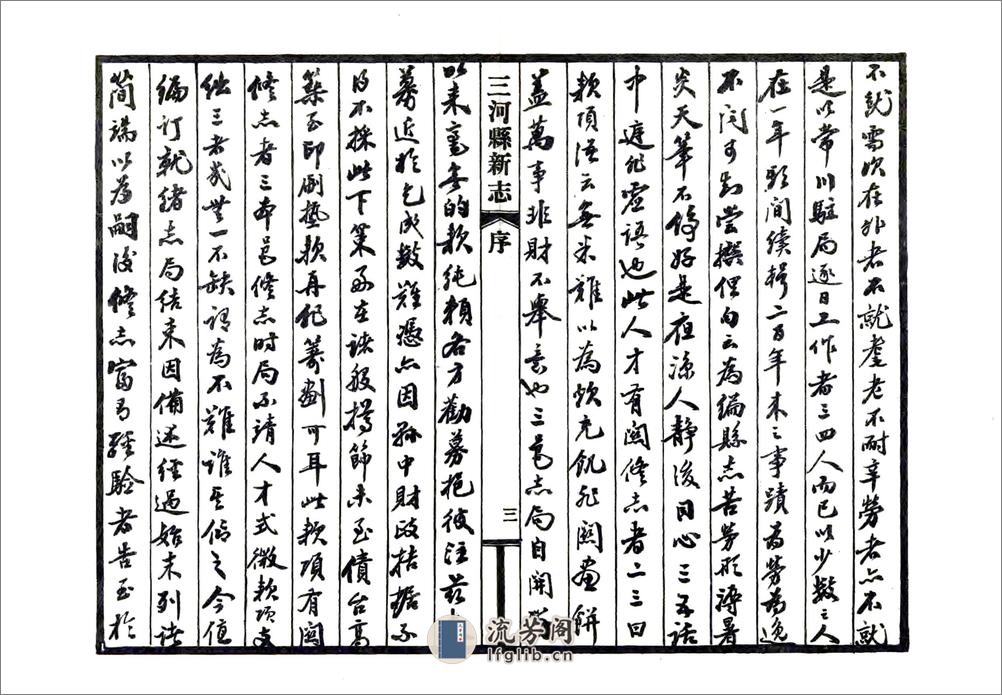 不就需次在外者不就耄老不耐辛勞者亦不就
是以常川駐局逐日工作者三四人而已以少數之人
在一年期間續輯二百年來之事蹟為勞為逸
不問可知嘗撰俚句云為編縣志苦勞形溽暑
炎天筆不停好是夜涼人靜後同心三五話
中庭非虛語也此人才有關修志者二三曰
款項語云無米難以為炊充飢非關畫餅
蓋萬事非財不舉意也三邑志局自開辦
三河縣新志
序
三
以來毫無的款純賴各方勸募挹彼注茲
募近於乞成數難憑亦因縣中財政拮据不
得不採此下策而在諸般撙節未至債台高
築至印刷墊款再batch籌劃可耳此款項有關
修志者三本邑修志時局不靖人才式微款項支
絀三者幾無一不缺謂為不難誰其信之今值
編訂就緒志局結束因備述經過始末列諸
簡端以為嗣後修志富有經驗者告至於
流芳阁
lfglib.cn